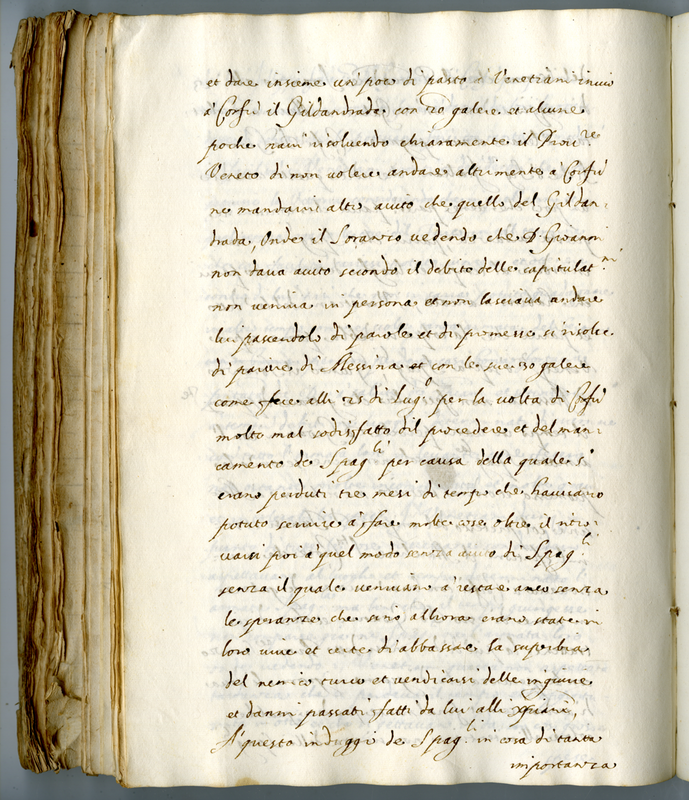 et dare insieme un' poco di pasto à Venetiani inviò
à Corfù il Gildandrada con 20 galere et alcune
poche navi risolvendo chiaramente il Prov.re
Veneto di non volere andare altrimente à Corfù
ne mandarvi altro aiuto che quello del Gildan-
drada, Onde il Soranzo vedendo che D. Giovanni
non dava aiuto secondo il debito delle capitulat.ni
non veniva in persona et non lasciava andare
lui pascendolo di parole et di promesse si risolse
di partire di Messina et con le sue 30 galere
come fece alli 25 di Lug.o per la volta di Corfù
molto mal sodisfatto dil procedere et del man-
camento de Spag.li per causa della quale s'
erano perduti tre mesi di tempo che havriano
potuto servire à fare molte cose oltre il ritro-
varsi poi à quel modo senza aiuto di Spag.li
senza il quale venivano à restare anco senza
le speranze che sino alhora erano state in
loro vive et certe di abbassare la superbia
del nemico turco et vendicarsi delle ingiurie
et danni passati fatti da lui alli xp̄iani,
A questo induggi de Spag.li in cosa di tanta
importanza